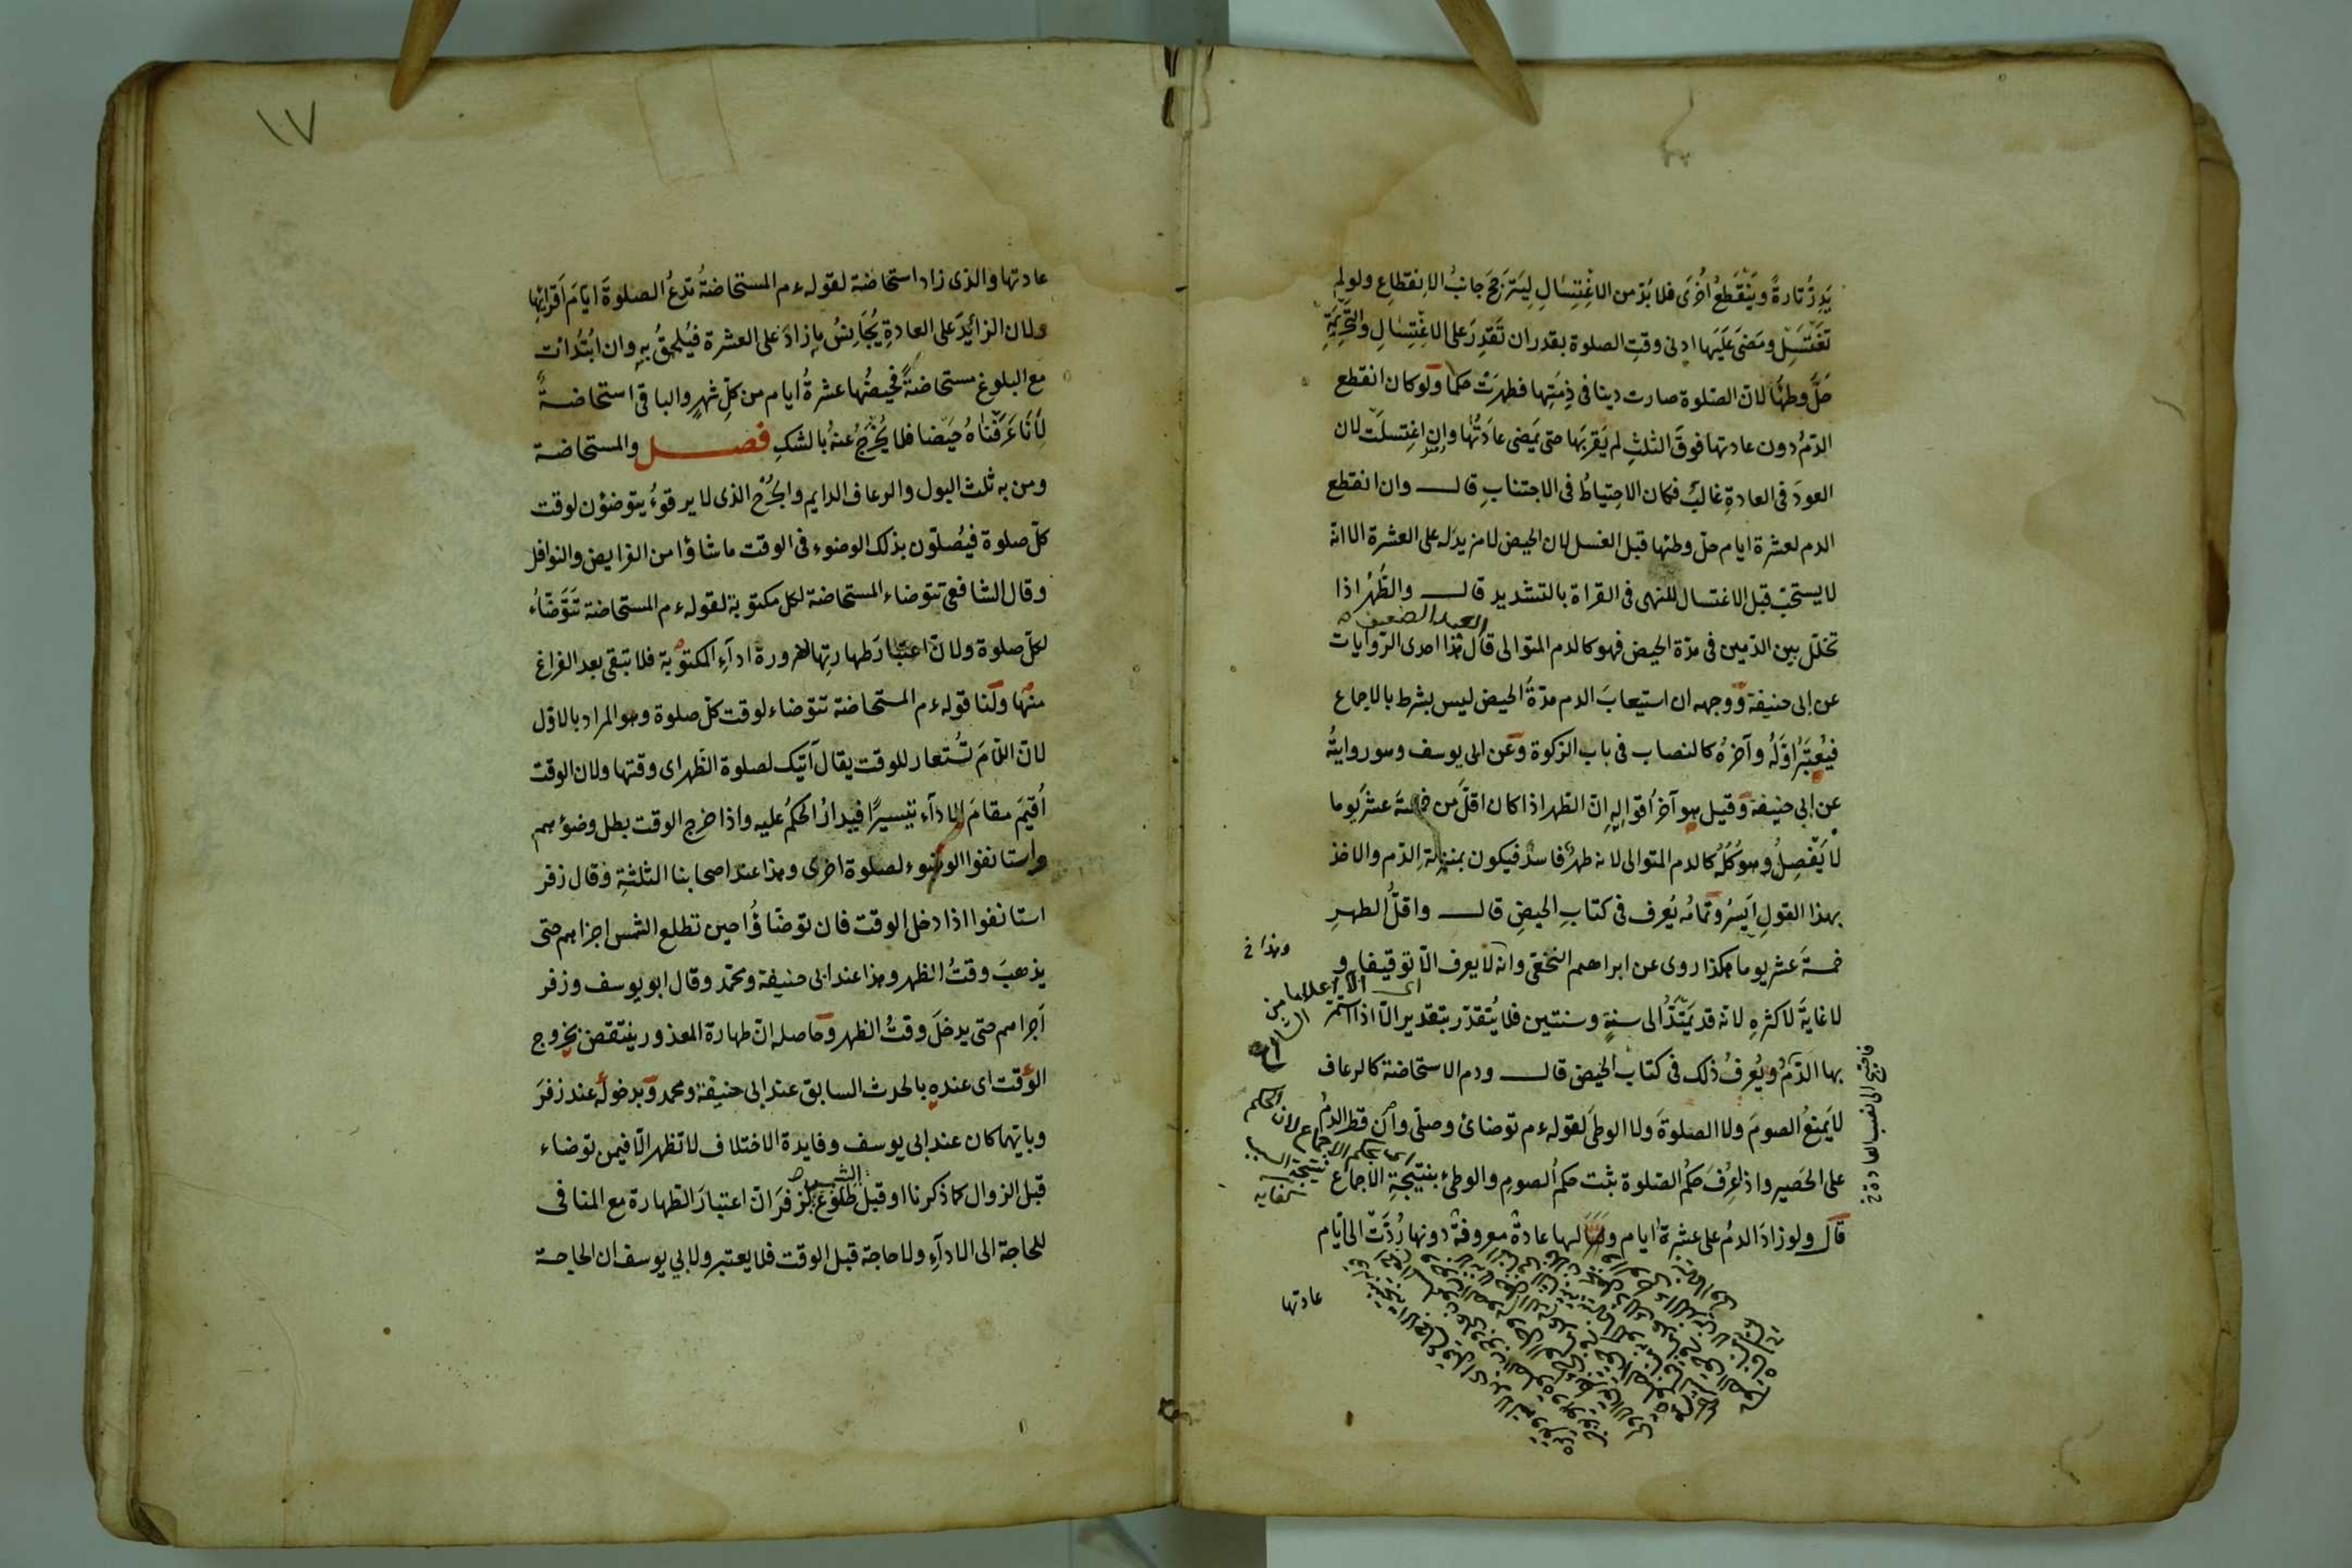 يَدِرُّ تارةً ويَنْقَطعُ اُخْرَى فلا بُدّ من الاغْتِسَالِ لِيَتَرَجّحَ جانبُ الانقطاعِ ولو لم
تَغْتَسِلْ ومَضَى عَلَيَها ادنى وقتِ الصلوة بقدر ان تَقدِرَ على الاغْتِسَالِ والتَّحْرِيمَةِ
حَلَّ وطئُها لانّ الصّلوة صارت دينا فى ذِمّتِها فطهرَتْ حكما ولو كان انقطع
الدّمُ دون عادتها فوقَ الثلثِ لم يَقربَها حتى يَمضى عادَتُها وان اغتسلَت لان
العودَ فى العادةِ غالبٌ فكان الاحتِياطُ فى الاجتنابِ قال وان انقطع
الدم لعشرة ايام حلّ وطئها قبل الغسل لان الحيض لا مزيد له على العشرة الا انه
لا يستحبّ قبل الاغتسال للنهى فى القراة بالتشديد قال والطُهْرُ اذا
العبد الضعيف
تخلّل بين الدّمين فى مدّة الحيض فهو كالدم المتوالى قال هذا احدى الرّوايات
عن ابى حنيفة ووجهه ان استيعابَ الدم مدّةَ الحيض ليس بشرط بالاجماع
فيُعتَبَرُ اوّلُهُ وآخرُهُ كالنصاب فى باب الزكوة وعن ابى يوسف وهو روايتُه
عن ابى حنيفة وقيل هو آخرُ اقوالِهِ انّ الطهر اذا كان اقلّ من خمسةَ عشَر يوما
لا يَفْصِلُ وهو كُلّهُ كالدم المتوالى لانه طهرٌ فاسدٌ فيكون بمنزلةِ الدّم والاخذ
بهذا القولِ اَيسَرُ وتمامُه يُعرف فى كتابِ الحيضِ قال واقلُّ الطهرِ
خمسةَ عشر يوما هكذا روى عن ابراهيم النخعىّ وانّه لا يعرف الّا توقيفا و
وهذا خ
اى الّا اعلاما من
الشارع
لا غايةَ لاكثرِهِ لانّه قد يَمْتَدُّ الى سنةٍ وسنتين فلا يُتقدّر بتقدير الّا اذا استمرّ
بها الدّمُ ويُعرفُ ذلك فى كتاب الحيض قال ودم الاستحاضة كالرعاف
فاحتج الى نصب العادة خ
لا يَمنعُ الصومَ ولا الصلوةَ ولا الوطىَ لقوله عم توضائ وصلّى وان قطر الدمُ
على الحَصير واذ عُرفَ حكمُ الصّلوة ثبت حكمُ الصومِ والوطئ بنتيجةِ الاجماع
اى بحكم الاجماع لان الحكم
نتيجة السبب
كفايه
قال ولو زادَ الدمُ على عشرةِ ايام ولها عادةٌ معروفةٌ دونها رُدَّتْ الى ايّام
عادتها
١٧
عادتها والذى زاد استحاضة لقوله عم المستحاضةُ تدعُ الصلوةَ ايّامَ اَقرائها
ولان الزائدَ على العادةِ يُجَانِسُ ما زادَ على العشرة فيُلحقُ بهِ وان ابتُدأت
مع البلوغ مستحاضةً فحيضُها عشرةُ ايام من كلّ شهرٍ والباقى استحاضةٌ
لأنّا عَرَفْناهُ حَيَضا فلا يُخْرَجُ عنهُ بالشكِ فصل والمستحاضة
ومن به ثلث البول والرعاف الدايم والجُرْح الذى لا يرقوءُ يتوضؤن لوقت
كلّ صلوة فيُصلّون بذلك الوضوء فى الوقت ما شاؤا من الفرايض والنوافل
وقال الشافعى تتوضاء المستحاضة لكل مكتوبة لقوله عم المستحاضة تَتَوَضّاءُ
لكلّ صلوة ولانّ اعتبارَ طهارتِها لضرورة ادآءِ المكتوبة فلا تبقى بعد الفراغ
منها ولنا قوله عم المستحاضة تتوضاء لوقت كلّ صلوة وهو المراد بالاوّل
لانّ اللّامَ تُستعار للوقت يقال آتيك لصلوة الظهر اى وقتها ولان الوقت
اُقيمَ مقامَ الادآءِ تيسيرًا فيدارُ الحكمُ عليه واذا خرج الوقت بطل وضوءهم
واستانفوا الوضوء لصلوة اخرى وهذا عند اصحابنا الثلثةِ وقال زفر
استانفوا اذا دخل الوقت فان توضّاؤُا حين تطلع الشمس اجزاهم حتى
يذهبَ وقتُ الظهر وهذا عند ابى حنيفة ومحمّد وقال ابو يوسف وزفر
اَجزاهم حتى يدخلَ وقتُ الظهر وحاصله انّ طهارة المعذور ينتقض بخروج
الوقت اى عنده بالحدث السابق عند ابى حنيفة ومحمد وبدخوله عند زفرَ
وبايّهما كان عند ابى يوسف وفايدة الاختلاف لا تظهر الّا فيمن توضاء
الشمس
قبل الزوال كما ذكرنا او قبل طلوع لزفرَ انّ اعتبارَ الطهارة مع المنافى
للحاجة الى الادآءِ ولا حاجة قبل الوقت فلا يعتبر ولابي يوسف ان الحاجة